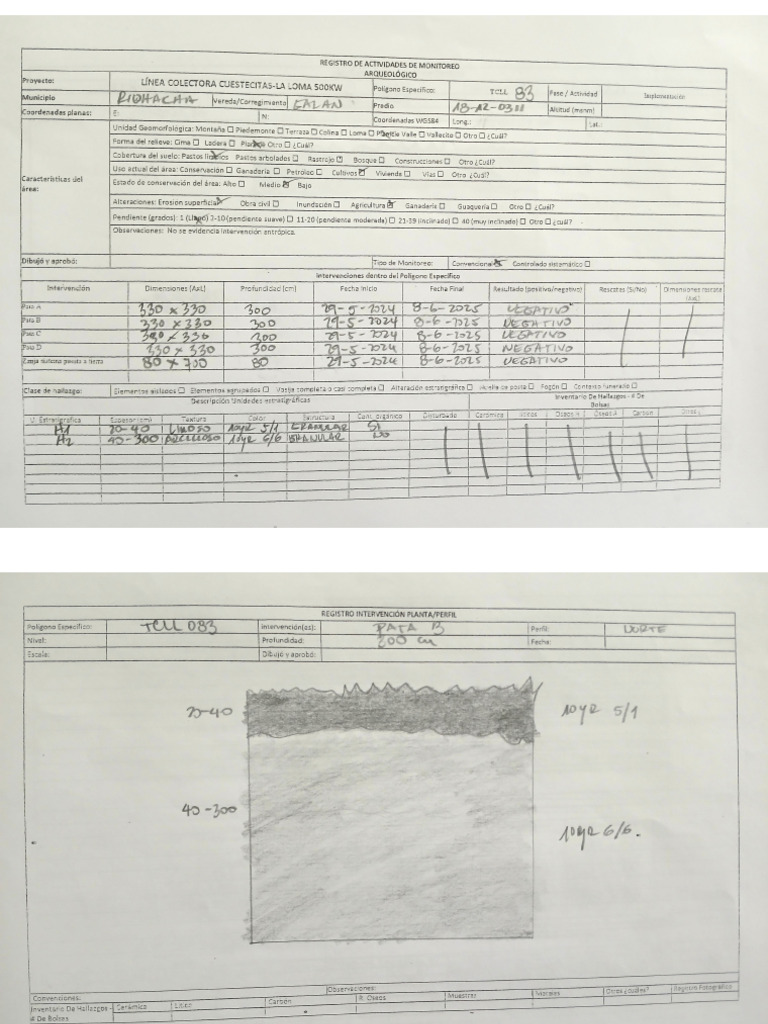 REGISTRO DE ACTIVIDADES DE MONITOREO
ARQUEOLÓGICO
Proyecto: LÍNEA COLECTORA CUESTECITAS-LA LOMA 500KW Polígono Específico: TCLL 83 Fase / Actividad Implementación
Municipio RIOHACHA Vereda/Corregimiento Predio 18-12-0311 Altitud (msnm)
Coordenadas planas: E: N: Coordenadas WGS84 Long.: Lat.:
Características del área:
Unidad Geomorfológica: Montaña ☐ Piedemonte ☐ Terraza ☐ Colina ☐ Loma ☐ Planicie Valle ☐ Vallecito ☐ Otro ☐ ¿Cuál?
Forma del relieve: Cima ☐ Ladera ☐ Planicie Otro ☐ ¿Cuál?
Cobertura del suelo: Pastos limpios Pastos arbolados ☐ Rastrojo ☑ Bosque ☐ Construcciones ☐ Otro ¿Cuál?
Uso actual del área: Conservación ☐ Ganadería ☐ Petroleo ☐ Cultivos ☑ Vivienda ☐ Vías ☐ Otro ¿Cuál?
Estado de conservación del área: Alto ☐ Medio ☑ Bajo
Alteraciones: Erosión superficial Obra civil ☐ Inundación ☐ Agricultura ☑ Ganadería ☐ Guaquería ☐ Otro ☐ ¿Cuál?
Pendiente (grados): 1 (Llano) 2-10 (pendiente suave) ☐ 11-20 (pendiente moderada) ☐ 21-39 (inclinado) ☐ 40 (muy inclinado) ☐ Otro ☐ ¿Cuál?
Observaciones: No se evidencia intervención antrópica.
Dibujó y aprobó: Tipo de Monitoreo: Convencional ☒ Controlado sistemático ☐
Intervenciones dentro del Polígono Específico
Intervención Dimensiones (AxL) Profundidad (cm) Fecha Inicio Fecha Final Resultado (positivo/negativo) Rescates (Si/No) Dimensiones rescate (AxL)
Pata A 330 x 330 300 29-5-2024 8-6-2025 NEGATIVO
Pata B 330 x 330 300 29-5-2024 8-6-2025 NEGATIVO
Pata C 330 x 330 300 29-5-2024 8-6-2025 NEGATIVO
Pata D 330 x 330 300 29-5-2024 8-6-2025 NEGATIVO
Zanja sistema puesta a tierra 80 x 700 80 29-5-2024 8-6-2025 NEGATIVO
Clase de hallazgo: Elementos aislados ☐ Elementos agrupados ☐ Vasija completa o casi completa ☐ Alteración estratigráfica ☐ Huella de poste ☐ Fogón ☐ Contexto funerario ☐
Descripción Unidades estratigráficas Inventario De Hallazgos - # De Bolsas
U. Estratigráfica Espesor (cm) Textura Color Estructura Cont. orgánico Cerámica Carbón
H1 20-40 LIMOSO 10YR 5/1 GRANULAR SI
H2 40-300 10YR 6/6 GRANULAR NO
REGISTRO INTERVENCIÓN PLANTA/PERFIL
Polígono Específico: TCLL 083 Intervención(es): PATA B Perfil: NORTE
Nivel: Profundidad: 300 cm Fecha:
Escala: Dibujó y aprobó:
20-40 10YR 5/1
40-300 10YR 6/6.
Observaciones:
Convenciones:
Inventario De Hallazgos - # De Bolsas Cerámica Lítico Carbón R. Óseos Muestras Metales Otros ¿cuáles? Registro Fotográfico